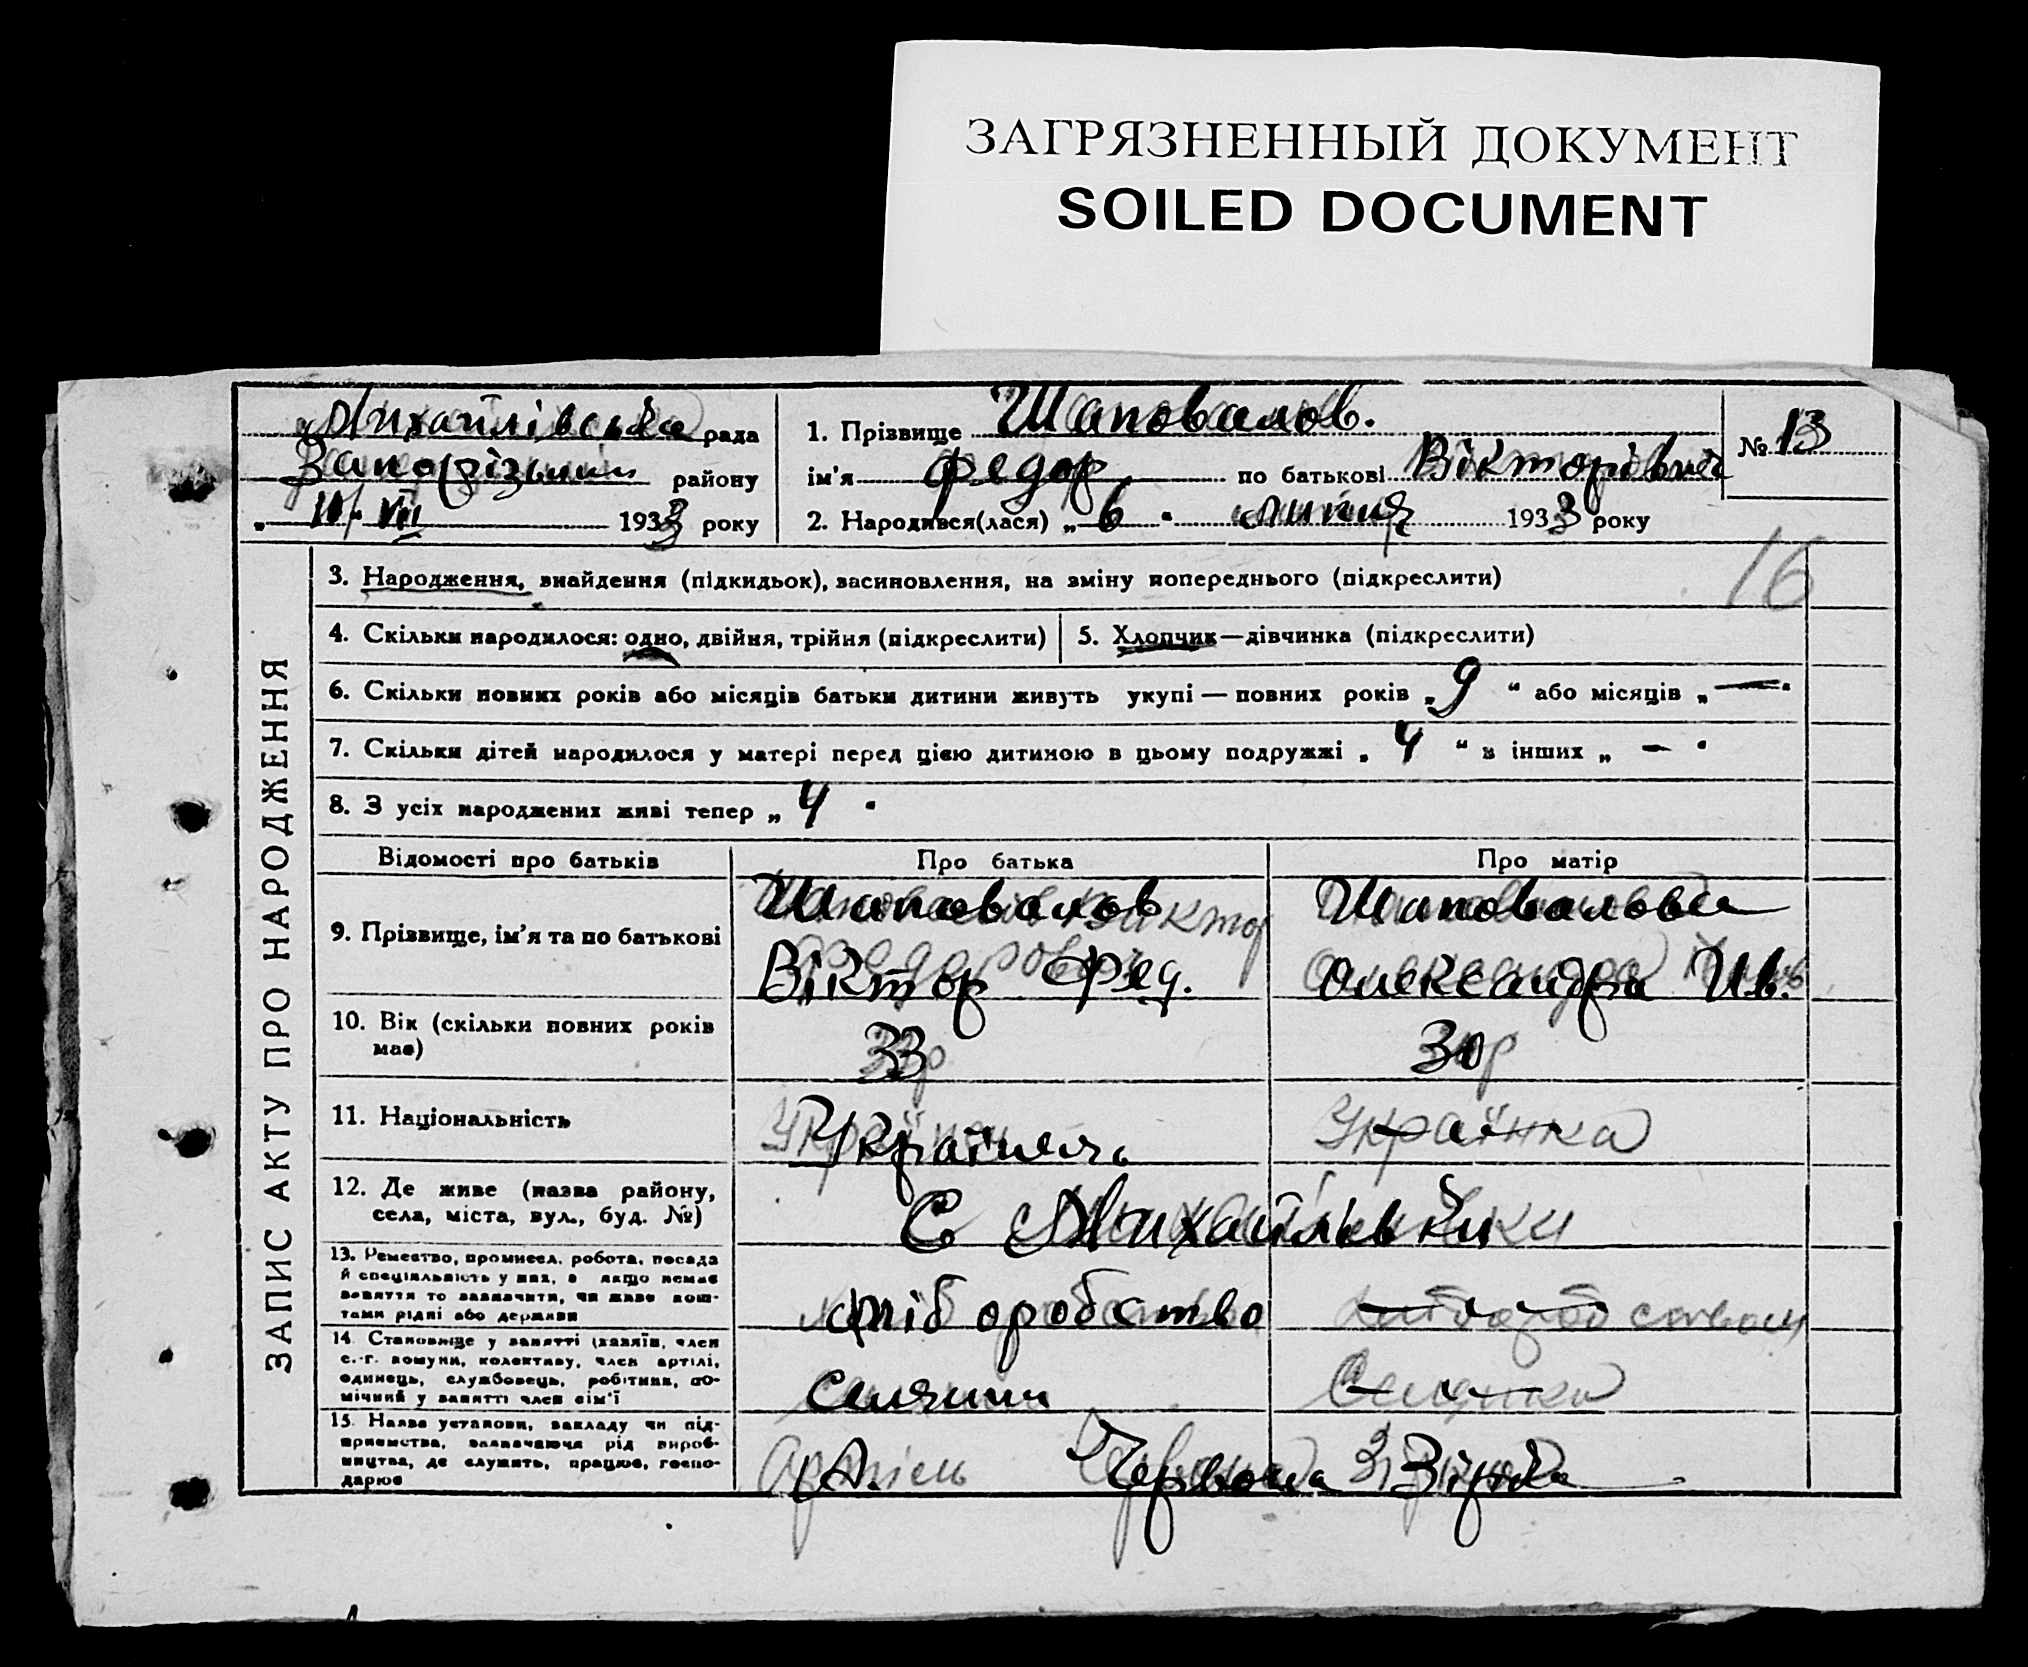 ЗАГРЯЗНЕННЫЙ ДОКУМЕНТ
SOILED DOCUMENT
Михайлівська рада
Запорізький району
„ 10/VII 1933 року
1. Прізвище Шаповалов.
ім'я Федор по батькові Вікторівич
2. Народився(лася) „ 6 " липня 1933 року
№ 13
16
ЗАПИС АКТУ ПРО НАРОДЖЕННЯ
3. Народження, знайдення (підкидьок), засиновлення, на зміну попереднього (підкреслити)
4. Скільки народилося: одно, двійня, трійня (підкреслити)
5. Хлопчик—дівчинка (підкреслити)
6. Скільки повних років або місяців батьки дитини живуть укупі — повних років „ 9 “ або місяців „ — "
7. Скільки дітей народилося у матері перед цією дитиною в цьому подружжі „ 4 “ в інших „ — "
8. З усіх народжених живі тепер „ 4 "
Відомості про батьків
Про батька
Про матір
9. Прізвище, ім'я та по батькові
Шаповалов
Віктор Фед.
Шаповалова
Олександра Ив.
10. Вік (скільки повних років
має)
33
30
11. Національність
Українець
Українка
12. Де живе (назва району,
села, міста, вул., буд. №)
С Михайлівки
13. Ремество, промисел, робота, посада
й спеціяльність у них, а якщо немає
заняття то зазначити, чи живе кош-
тами рідні або держави
хліборобство
14. Становище у занятті (хазяїн, член
с.-г. комуни, колективу, член артілі,
одинець, службовець, робітник, по-
мічний у занятті член сім'ї
селянин
Селянка
15. Назва установи, закладу чи під-
приємства, зазначаючи рід вироб-
ництва, де служить, працює, госпо-
дарює
А. Червона Зірка